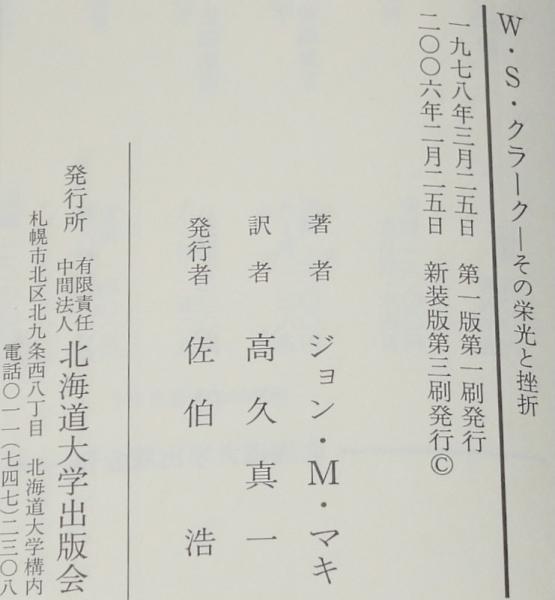 W・S・クラーク―その栄光と挫折
一九七八年三月二五日　第一版第一刷発行
二〇〇六年二月二五日　新装版第三刷発行©
著者　ジョン・M・マキ
訳者　高久真一
発行者　佐伯浩
発行所　有限責任中間法人　北海道大学出版会
札幌市北区北九条西八丁目　北海道大学構内
電話〇一一(七四七)二三〇八